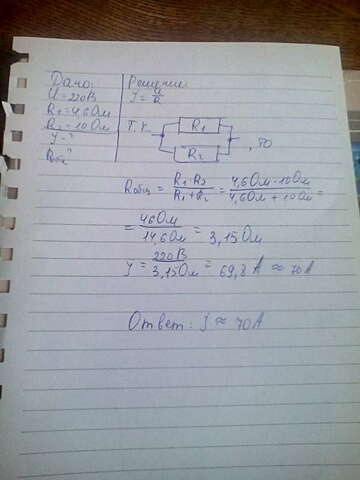 Дано:
U = 220 В
R1 = 4,6 Ом
R2 = 10 Ом
I - ?
Rобщ - ?
Решение
I = U/R
Т.к. R1 R2 , то
Rобщ = R1 · R2 / R1 + R2 = 4,6 Ом · 10 Ом / 4,6 Ом + 10 Ом =
= 46 Ом / 14,6 Ом = 3,15 Ом
I = 220 В / 3,15 Ом = 69,8 А ≈ 70 А
Ответ: I ≈ 70 А